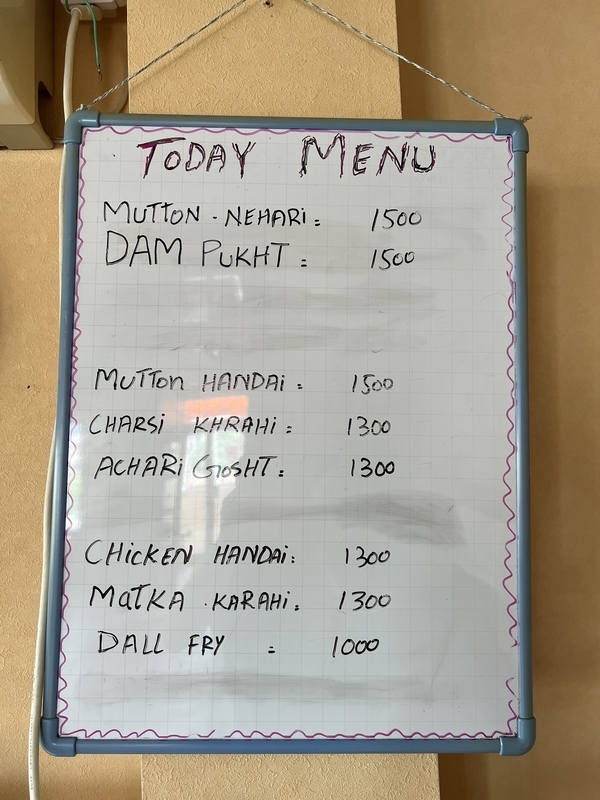 TODAY MENU
MUTTON - NEHARi = 1500
DAM PUKHT = 1500
MUTTON HANDAi = 1500
CHARSi KHRAHi = 1300
ACHARi GOSHT = 1300
CHicKEN HANDAi: 1300
MaTKA KARAHi = 1300
DALL FRY = 1000